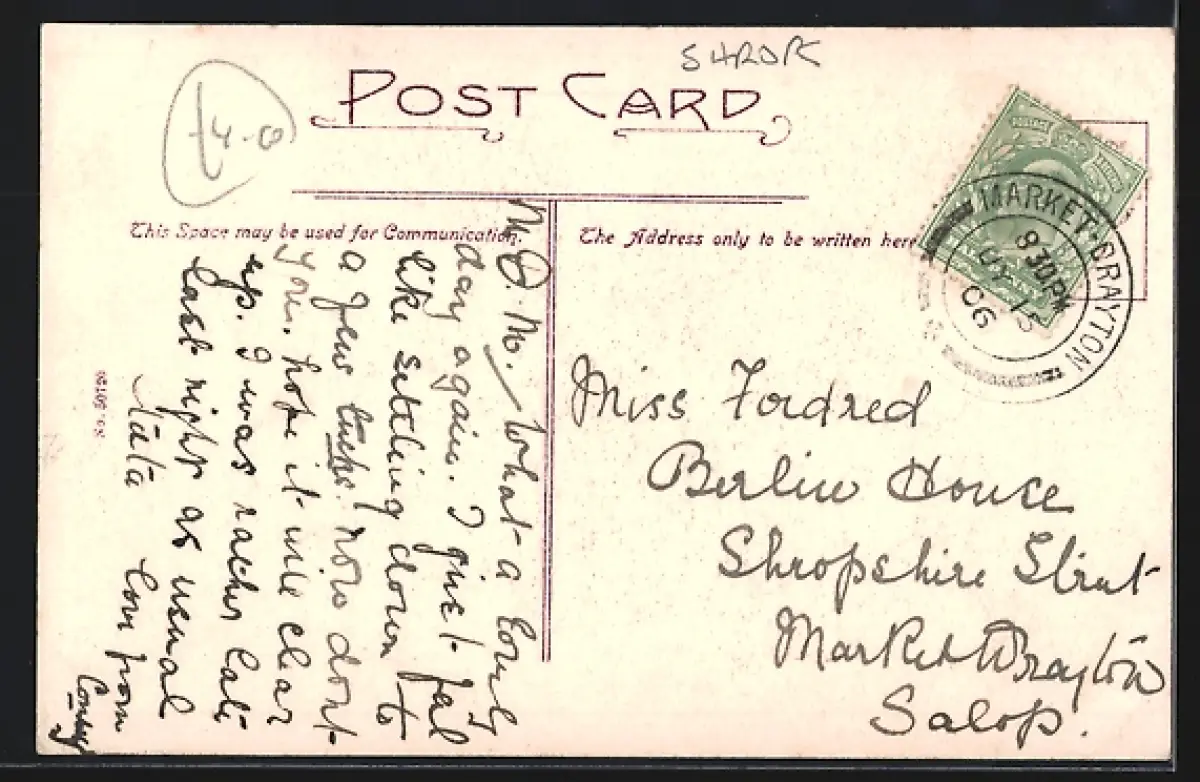 SHROP
£4-0
POST CARD
This Space may be used for Communication.
The Address only to be written here
MARKET-DRAYTON
8 30 PM
JY 1
06
What a lovely
day again. I feel
like settling down to
a few now don't
you. hope it will clear
up. I was rather late
last night as usual
Tata Love from
Miss Fordred
Berlin House
Shropshire Street
Market Drayton
Salop.